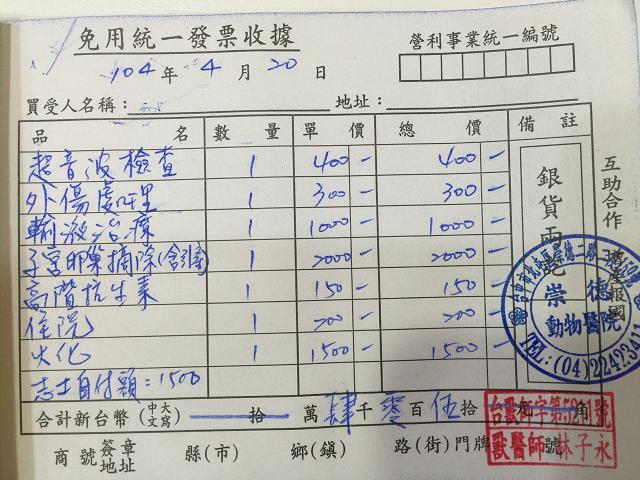 免用統一發票收據
營利事業統一編號
104年 4月 20日
買受人名稱： 地址：
品名 數量 單價 總價 備註
超音波檢查 1 400- 400-
外傷處理 1 300- 300-
輸液治療 1 1000- 1000-
子宮卵巢摘除(含引產) 1 2000- 2000-
高階抗生素 1 150- 150-
住院 1 200- 200-
火化 1 1500- 1500-
志士自付額：1500
銀貨兩訖
互助合作
報國
崇德
動物醫院
TEL:(04)22434
合計新台幣(中文大寫) 拾 萬 肆 千 零 百 伍 拾 角
台獸師字第5291號
獸醫師 林子永
商號簽章地址 縣(市) 鄉(鎮) 路(街)門牌 號